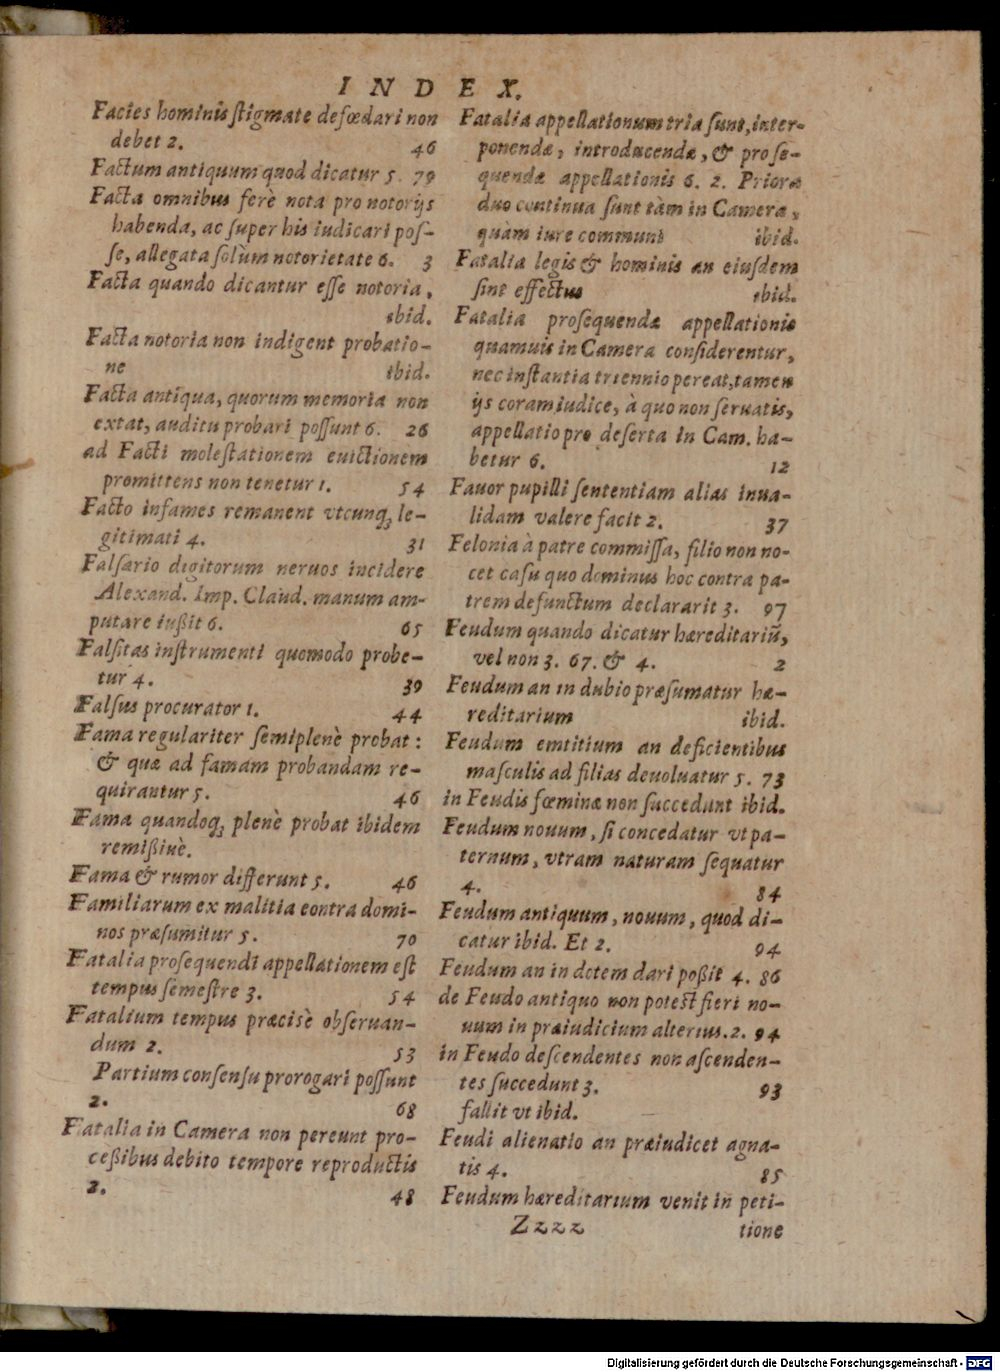 INDEX.
Facies hominis ſtigmate defœdari non
debet 2. 46
Factum antiquum quod dicatur 5. 79
Facta omnibus ferè nota pro notorijs
habenda, ac ſuper his iudicari poſ-
ſe, allegata ſolùm notorietate 6. 3
Facta quando dicantur eſſe notoria,
ibid.
Facta notoria non indigent probatio-
ne ibid.
Facta antiqua, quorum memoria non
extat, auditu probari poſſunt 6. 26
ad Facti moleſtationem euictionem
promittens non tenetur 1. 54
Facto infames remanent vtcunq; le-
gitimati 4. 31
Falſario digitorum neruos incidere
Alexand. Imp. Claud. manum am-
putare iußit 6. 65
Falſitas inſtrumenti quomodo probe-
tur 4. 39
Falſus procurator 1. 44
Fama regulariter ſemiplenè probat:
& quæ ad famam probandam re-
quirantur 5. 46
Fama quandoq; plenè probat ibidem
remißiuè.
Fama & rumor differunt 5. 46
Familiarum ex malitia contra domi-
nos præſumitur 5. 70
Fatalia proſequendi appellationem eſt
tempus ſemeſtre 3. 54
Fatalium tempus præcisè obſeruan-
dum 2. 53
Partium conſenſu prorogari poſſunt
2. 68
Fatalia in Camera non pereunt pro-
ceßibus debito tempore reproductis
2. 48
Fatalia appellationum tria ſunt, inter-
ponendæ, introducendæ, & proſe-
quendæ appellationis 6. 2. Priora
duo continua ſunt tàm in Camera,
quàm iure communi ibid.
Fatalia legis & hominis an eiuſdem
ſint effectus ibid.
Fatalia proſequendæ appellationis
quamuis in Camera conſiderentur,
nec inſtantia triennio pereat, tamen
ijs coram iudice, à quo non ſeruatis,
appellatio pro deſerta in Cam. ha-
betur 6. 12
Fauor pupilli ſententiam alias inua-
lidam valere facit 2. 37
Felonia à patre commiſſa, filio non no-
cet caſu quo dominus hoc contra pa-
trem defunctum declararit 3. 97
Feudum quando dicatur hæreditariū,
vel non 3. 67. & 4. 2
Feudum an in dubio præſumatur hæ-
reditarium ibid.
Feudum emtitium an deficientibus
maſculis ad filias deuoluatur 5. 73
in Feudis fœminæ non ſuccedunt ibid.
Feudum nouum, ſi concedatur vt pa-
ternum, vtram naturam ſequatur
4. 84
Feudum antiquum, nouum, quod di-
catur ibid. Et 2. 94
Feudum an in dotem dari poßit 4. 86
de Feudo antiquo non poteſt fieri no-
uum in præiudicium alterius. 2. 94
in Feudo deſcendentes non aſcenden-
tes ſuccedunt 3. 93
fallit vt ibid.
Feudi alienatio an præiudicet agna-
tis 4. 85
Feudum hæreditarium venit in peti-
Zzzz tione
Digitalisierung gefördert durch die Deutsche Forschungsgemeinschaft - DFG